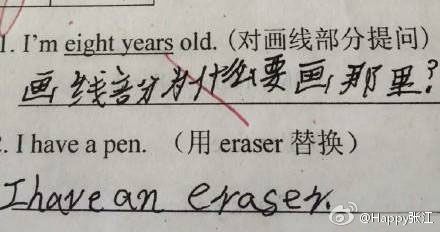 1. I'm eight years old. (对画线部分提问)
画线部分为什么要画那里?
2. I have a pen. （用 eraser 替换）
I have an eraser.
@Happy张江